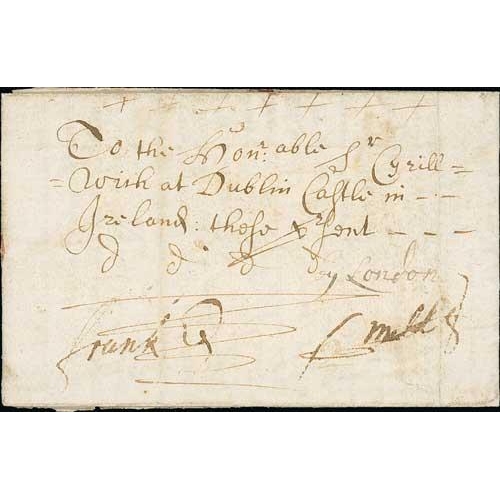 To the Honr.able Sr Cyrill=
=Wich at Dublin Castle in - · -
Ireland: these prsent - - -
d d d d
by London
Frank